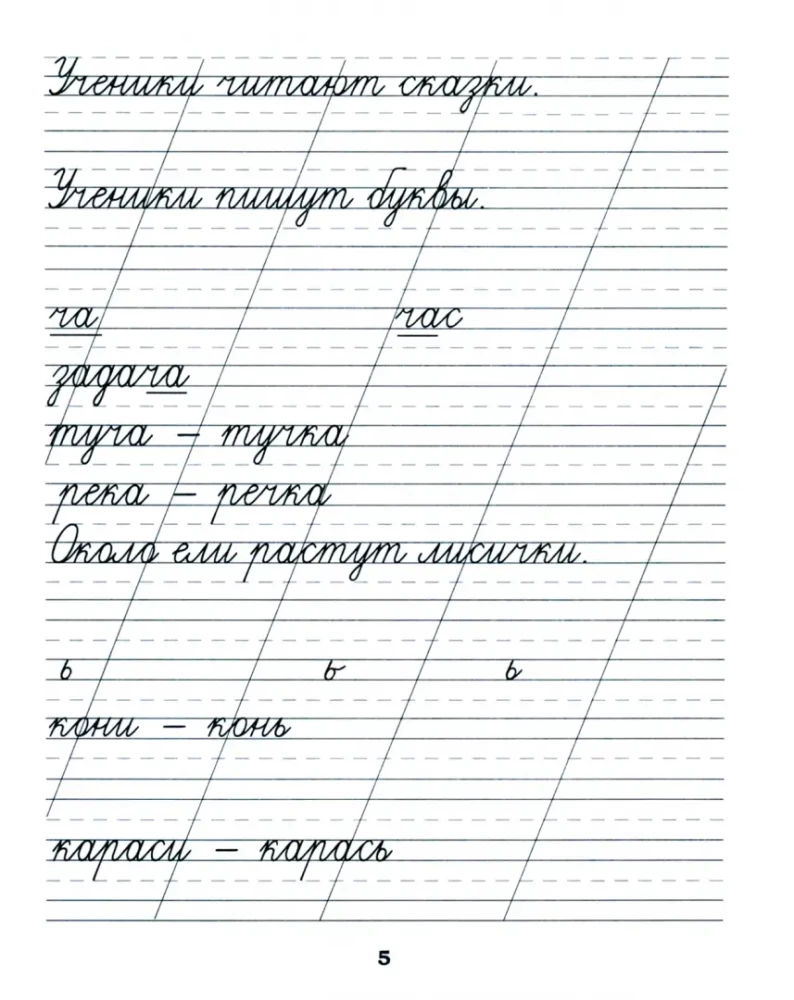 Ученики читают сказки.
Ученики пишут буквы.
ча час
задача
туча – тучка
река – речка
Около ели растут лисички.
ь ъ ь
кони – конь
караси – карась
5